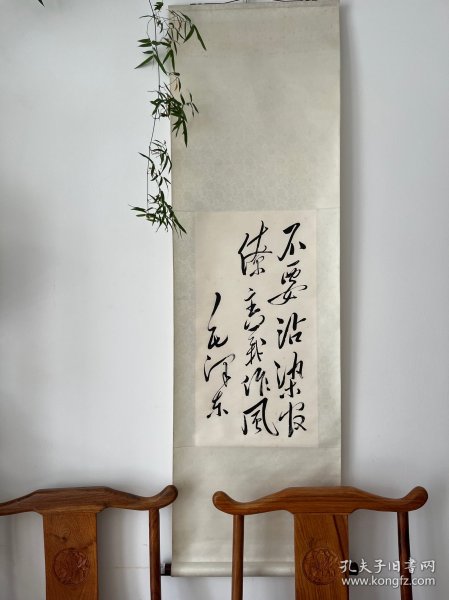 不要沾染官
僚主义作风
毛泽东
孔夫子旧书网
www.kongfz.com